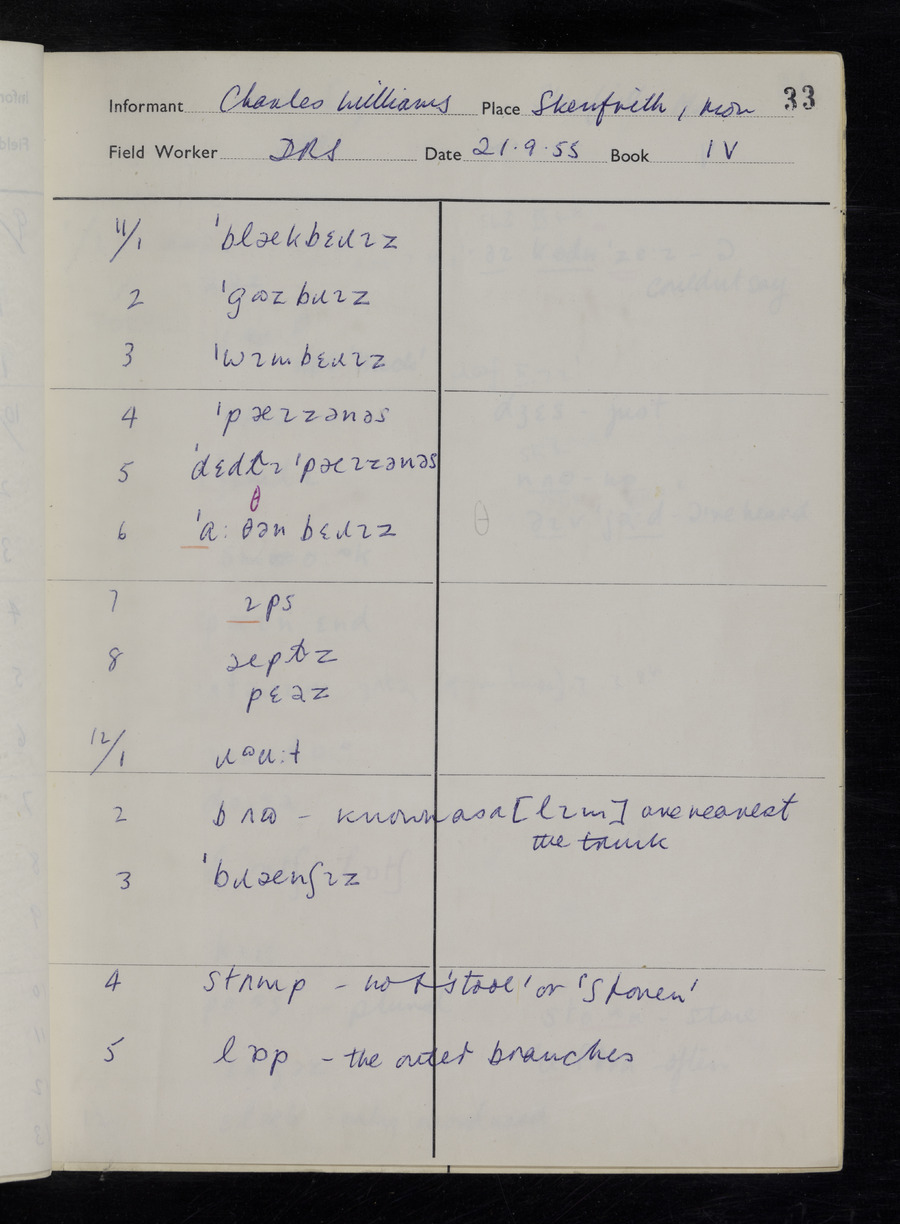 Informant Charles Williams Place Skenfrith, Mon 33
Field Worker DRS Date 21·9·55 Book IV
11/1 ˈblækbɛɹɪz
2 ˈgɷzbɹɪz
3 ˈwɪmbɛɹɪz
4 ˈpæɪzənəs
5 ˈdɛdlɪ ˈpæɪzənəs
θ
6 ˈa:θən bɛɹɪz θ
7 ɪps
8 æpɫz
pɛəz
12/1 ɹɷu:t
2 bʌɷ - known as a [lɪm] one nearest
the trunk
3 ˈbɹænʃɪz
4 stʌmp - not 'stool' or 'stoven'
5 lɒp - the outer branches